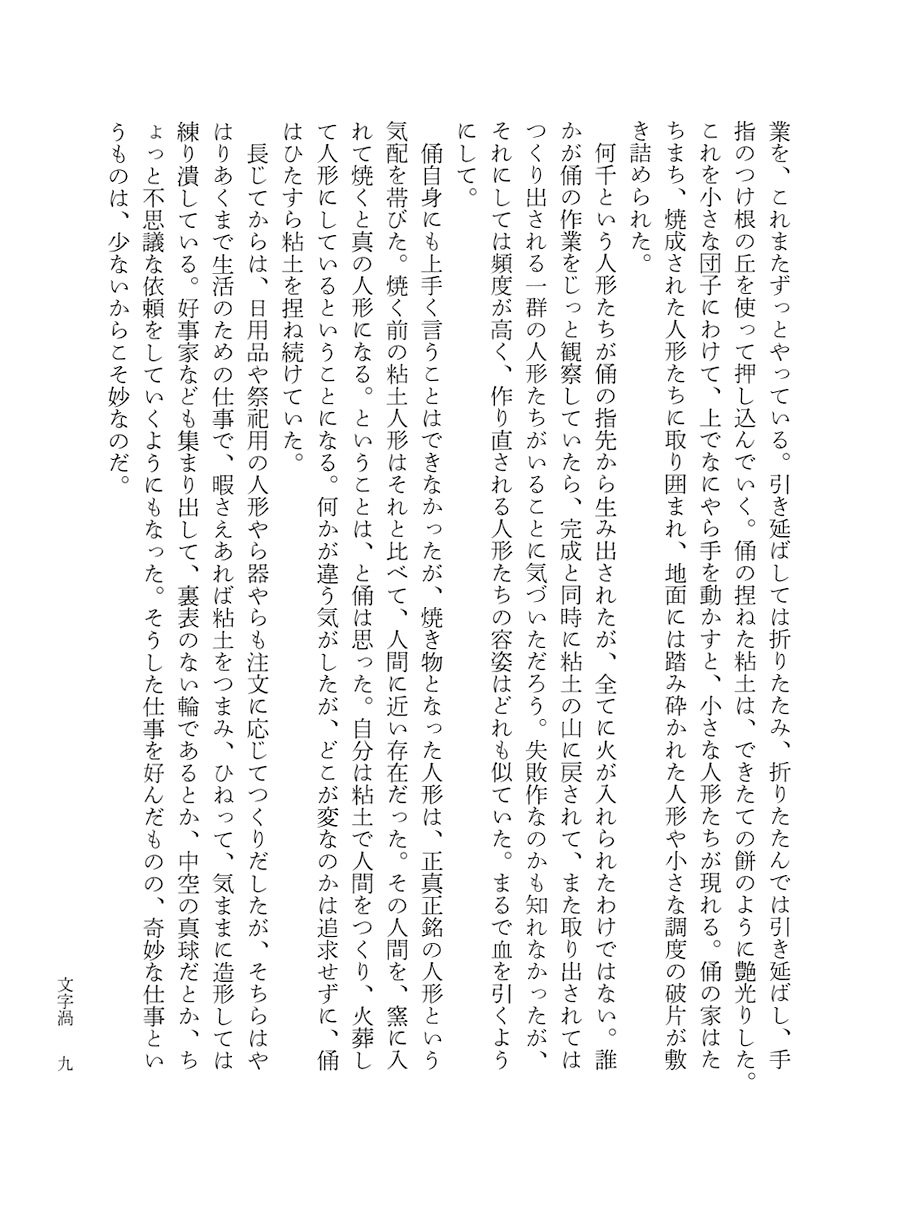 業を、これまたずっとやっている。引き延ばしては折りたたみ、折りたたんでは引き延ばし、手
指のつけ根の丘を使って押し込んでいく。俑の捏ねた粘土は、できたての餅のように艶光りした。
これを小さな団子にわけて、上でなにやら手を動かすと、小さな人形たちが現れる。俑の家はた
ちまち、焼成された人形たちに取り囲まれ、地面には踏み砕かれた人形や小さな調度の破片が敷
き詰められた。
何千という人形たちが俑の指先から生み出されたが、全てに火が入れられたわけではない。誰
かが俑の作業をじっと観察していたら、完成と同時に粘土の山に戻されて、また取り出されては
つくり出される一群の人形たちがいることに気づいただろう。失敗作なのかも知れなかったが、
それにしては頻度が高く、作り直される人形たちの容姿はどれも似ていた。まるで血を引くよう
にして。
俑自身にも上手く言うことはできなかったが、焼き物となった人形は、正真正銘の人形という
気配を帯びた。焼く前の粘土人形はそれと比べて、人間に近い存在だった。その人間を、窯に入
れて焼くと真の人形になる。ということは、と俑は思った。自分は粘土で人間をつくり、火葬し
て人形にしているということになる。何かが違う気がしたが、どこが変なのかは追求せずに、俑
はひたすら粘土を捏ね続けていた。
長じてからは、日用品や祭祀用の人形やら器やらも注文に応じてつくりだしたが、そちらはや
はりあくまで生活のための仕事で、暇さえあれば粘土をつまみ、ひねって、気ままに造形しては
練り潰している。好事家なども集まり出して、裏表のない輪であるとか、中空の真球だとか、ち
ょっと不思議な依頼をしていくようにもなった。そうした仕事を好んだものの、奇妙な仕事とい
うものは、少ないからこそ妙なのだ。
文字渦 九